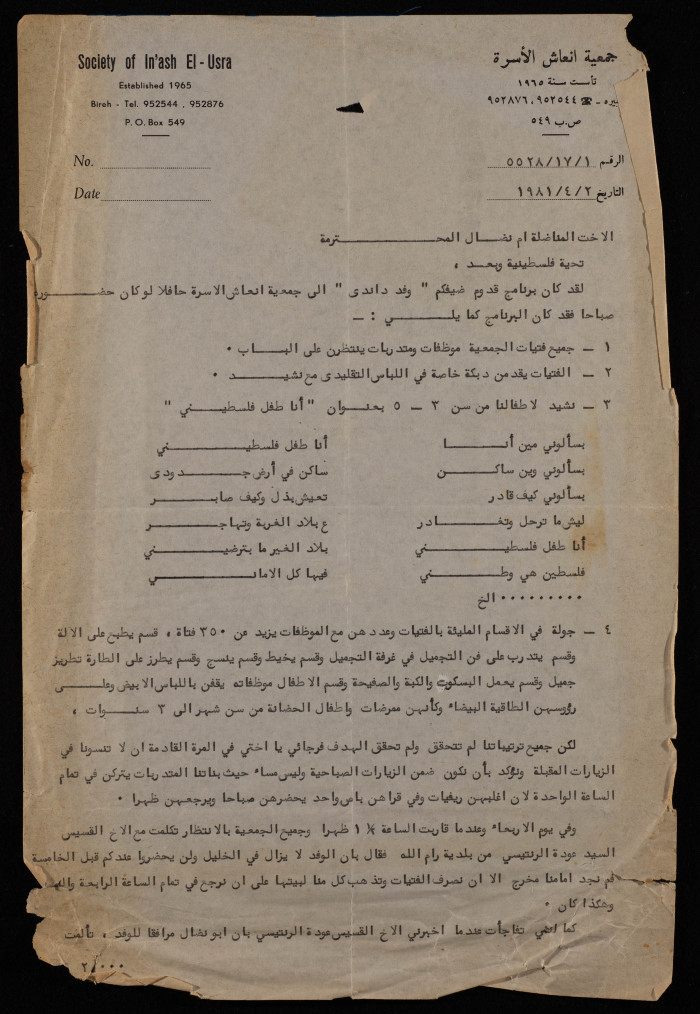 Society of In'ash El-Usra
Established 1965
Bireh - Tel. 952544 , 952876
P. O. Box 549
جمعية انعاش الأسرة
تأست سنة ١٩٦٥
يره - ☎ ٩٥٢٥٤٤، ٩٥٢٨٧٦
ص.ب ٥٤٩
No.
Date
الرقم ٥٥٢٨/١٧/١
التاريخ ١٩٨١/٤/٢
الاخت المناضلة ام نضال المحترمة
تحية فلسطينية وبعد ،
لقد كان برنامج قدوم ضيفكم " وفد داندى " الى جمعية انعاش الاسرة حافلا لو كان حضوره
صباحا فقد كان البرنامج كما يلي : ـ
١ ـ جميع فتيات الجمعية موظفات ومتدربات ينتظرن على الباب .
٢ ـ الفتيات يقدمن دبكة خاصة في اللباس التقليدى مع نشيد .
٣ ـ نشيد لاطفالنا من سن ٣ ـ ٥ بعنوان " أنا طفل فلسطيني "
بسألوني مين أنا أنا طفل فلسطيني
بسألوني وين ساكن ساكن في أرض جدودى
بسألوني كيف قادر تعيش بذل وكيف صابر
ليش ما ترحل وتغادر ع بلاد الغربة وتهاجر
أنا طفل فلسطيني بلاد الغير ما بترضيني
فلسطين هي وطني فيها كل الاماني
٠٠٠٠٠٠٠٠٠ الخ
٤ ـ جولة في الاقسام المليئة بالفتيات وعددهن مع الموظفات يزيد عن ٣٥٠ فتاة ، قسم يطبع على الالة
وقسم يتدرب على فن التجميل في غرفة التجميل وقسم يخيط وقسم ينسج وقسم يطرز على الطارة تطريز
جميل وقسم يعمل البسكوت والكبة والصفيحة وقسم الاطفال موظفاته يقفن باللباس الابيض وعلى
رؤوسهن الطاقية البيضاء وكأنهن ممرضات واطفال الحضانة من سن شهر الى ٣ سنوات ،
لكن جميع ترتيباتنا لم تتحقق ولم تحقق الهدف فرجائي يا اختي في المرة القادمة ان لا تنسونا في
الزيارات المقبلة ونؤكد بأن نكون ضمن الزيارات الصباحية وليس مساء حيث بناتنا المتدربات يتركن في تمام
الساعة الواحدة لان اغلبهن ريفيات وفي قراهن باص واحد يحضرهن صباحا ويرجعهن ظهرا .
وفي يوم الاربعاء وعندما قاربت الساعة ١ ظهرا وجميع الجمعية بالانتظار تكلمت مع الاخ القسيس
السيد عودة الرنتيسي من بلدية رام الله فقال بان الوفد لا يزال في الخليل ولن يحضروا عندكم قبل الخامسة
فلم نجد امامنا مخرج الا ان نصرف الفتيات وتذهب كل منا لبيتها على ان نرجع في تمام الساعة الرابعة
وهكذا كان .
كما انني تفاجأت عندما اخبرني الاخ القسيس عودة الرنتيسي بان ابو نضال مرافقا للوفد ، تألمت
٢/٠٠٠